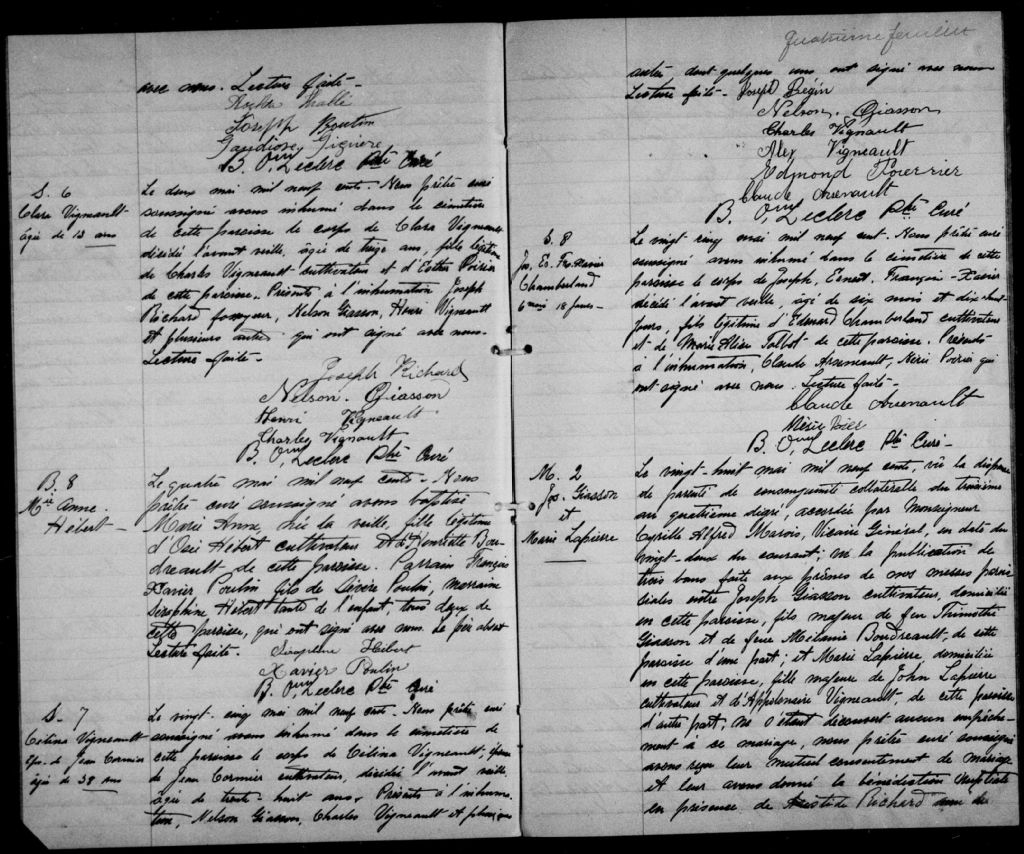 avec nous. Lecture faite -
Joseph Boutin
B. Oum Leclerc Ptre Curé
S. 6
Clara Vigneault
âgée de 13 ans
Le deux mai mil neuf cents - Nous prêtre curé
soussigné avons inhumé dans le cimetière
de cette paroisse le corps de Clara Vigneault
décédée l'avant veille, âgée de treize ans, fille légitime
de Charles Vigneault cultivateur et d'Esther Poirier
de cette paroisse. Présents à l'inhumation Joseph
Richard fossoyeur, Nelson Giasson, Henri Vigneault
et plusieurs autres qui ont signé avec nous.
Lecture faite -
Joseph Richard
Nelson. Giasson
Henri Vigneault
Charles Vignault
B. Oum Leclerc Ptre Curé
B. 8
Mie Anne.
Hébert -
Le quatre mai mil neuf cents - Nous
prêtre curé soussigné avons baptisé
Marie Anna, née la veille, fille légitime
d'Osée Hébert cultivateur et d'Henriette Bou-
dreault de cette paroisse. Parrain François
Xavier Poulin fils de Sévère Poulin, marraine
Séraphine Hébert tante de l'enfant, tous deux de
cette paroisse, qui ont signé avec nous. Le père absent
Lecture faite. Séraphine Hébert
Xavier Poulin
B. Oum Leclerc Ptre Curé
S. 7
Célina Vigneault
épse. de Jean Cormier
âgée de 38 ans
Le vingt-cinq mai mil neuf cents - Nous prêtre curé
soussigné avons inhumé dans le cimetière de
cette paroisse le corps de Célina Vigneault, épouse
de Jean Cormier cultivateur, décédée l'avant veille,
âgée de trente-huit ans. Présents à l'inhuma-
tion, Nelson Giasson, Charles Vigneault et plusieurs
Quatrième feuillet
autres, dont quelques uns ont signé avec nous
Lecture faite - Joseph Bégin
Nelson. Giasson
Charles Vignault
Alex Vigneault
Edmond Pourrier
Claude Arsenault
B. Oum Leclerc Ptre Curé
S. 8
Jos. Er. Frs. Xavier
Chamberland
6 mois 18 jours -
Le vingt cinq mai mil neuf cent. Nous prêtre curé
soussigné avons inhumé dans le cimetière de cette
paroisse le corps de Joseph, Ernest, François-Xavier
décédé l'avant veille, âgé de six mois et dix huit
jours, fils légitime d'Edouard Chamberland cultivateur
et de Marie Talbot de cette paroisse. Présents
à l'inhumation, Claude Arsenault, Poirier qui
ont signé avec nous. Lecture faite -
Claude Arsenault
B. Oum Leclerc Ptre Curé -
M. 2
Jos. Giasson
et
Marie Lapierre
Le vingt-huit mai mil neuf cents, vu la dispense
de parenté de consanguinité collatérelle du troisième
au quatrième degré accordée par Monseigneur
Cyrille Alfred Marois, Vicaire Général, en date du
vingt-deux du courant; vu la publication de
trois bans faite aux prônes de nos messes parois
siales entre Joseph Giasson cultivateur, domicilié
en cette paroisse, fils majeur de feu Thimothé
Giasson et de feue Mélanie Boudreault, de cette
paroisse d'une part; et Marie Lapierre domiciliée
en cette paroisse, fille majeure de John Lapierre
cultivateur et d'Appolonaire Vigneault, de cette paroisse
d'autre part, ne s'étant découvert aucun empêche-
ment à ce mariage, nous prêtre curé soussigné
avons reçu leur mutuel consentement de mariage
et leur avons donné la bénédiction nuptiale
en présence de Aristide Richard ami de